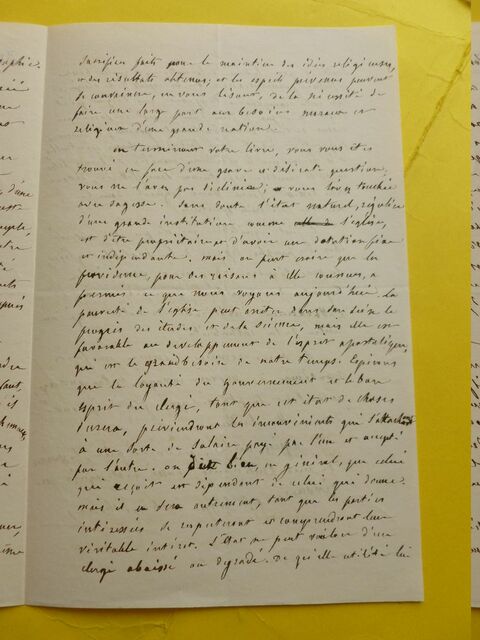 sacrifices faits pour le maintien des idées religieuses,
et des résultats obtenus, et les esprits prévenus peuvent
se convaincre, en vous lisant, de la nécessité de
faire une large part aux besoins moraux et
religieux d'une grande nation.
en terminant votre livre, vous vous êtes
trouvé en face d'une grave et délicate question,
vous ne l'avez pas déclinée; vous l'avez touchée
avec sagesse. Sans doute l'état naturel, régulier
d'une grande institution comme l'église,
est d'être propriétaire et d'avoir une dotation fixe
et indépendante. mais on peut croire que la
providence, pour des raisons à elle connues, a
permis ce que nous voyons aujourd'hui. La
pauvreté de l'église peut arrêter dans son sein le
progrès des études et de la science, mais elle est
favorable au développement de l'esprit apostolique,
qui est le grand besoin de notre temps. Espérons
que la loyauté du gouvernement et le bon
esprit du clergé, tant que cet état de choses
durera, préviendront les inconvénients qui s'attachent
à une sorte de salaire payé par l'un et accepté
par l'autre. on dit bien, en général, que celui
qui reçoit est dépendant de celui qui donne.
mais il en sera autrement, tant que les parties
intéressées se respecteront et comprendront leur
véritable intérêt. L'Etat ne peut vouloir d'un
clergé abaissé ou dégradé. De quelle utilité lui